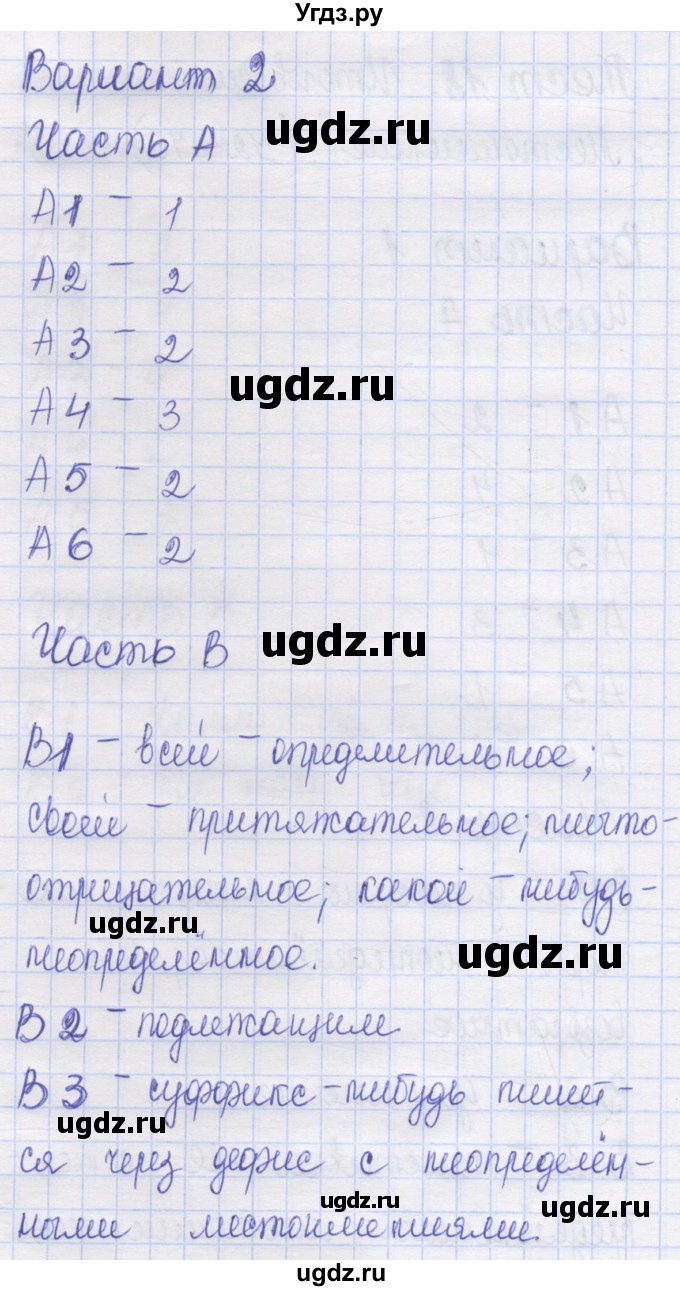 Угдз.ру
Вариант 2
ugdz.ru
Часть А
А1 - 1
А2 - 2
А3 - 2
ugdz.ru
А4 - 3
А5 - 2
А6 - 2
Часть В
ugdz.ru
В1 - всей - определительное;
своей - притяжательное; ничто-
отрицательное; какой-нибудь-
ugdz.ru
ugdz.ru
неопределённое.
В2 - подлежащим
В3 - суффикс -нибудь пишет-
ugdz.ru
ся через дефис с неопределён-
ugdz.ru
ugdz.ru
ными местоимениями.
ugdz.ru